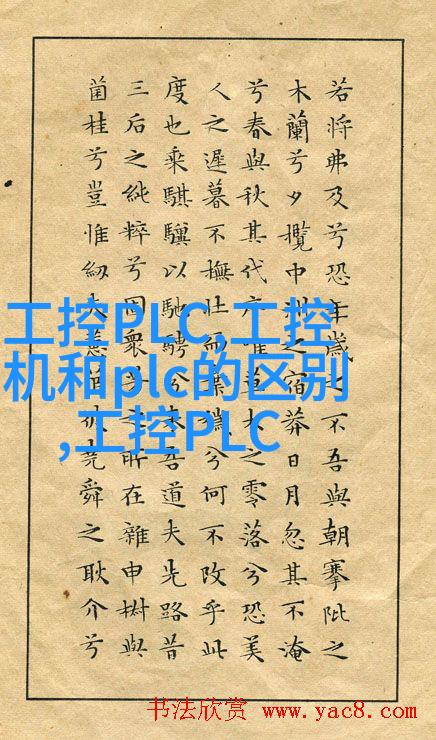 若將弗及兮恐年歲之不吾與朝搴阰之
木蘭兮夕攬中洲之宿莽日月忽其不淹
兮春與秋其代序惟草木之零落兮恐美
人之遲暮不撫壯而棄穢兮何不改乎此
度也乘騏驥以馳騁兮來吾道夫先路昔
三后之純粹兮固衆芳之所在雜申椒與
菌桂兮豈惟紉夫蕙茝彼堯舜之耿介兮
工控PLC,工控
机和plc的区别
,工控PLC
书法欣赏 www.yac8.com